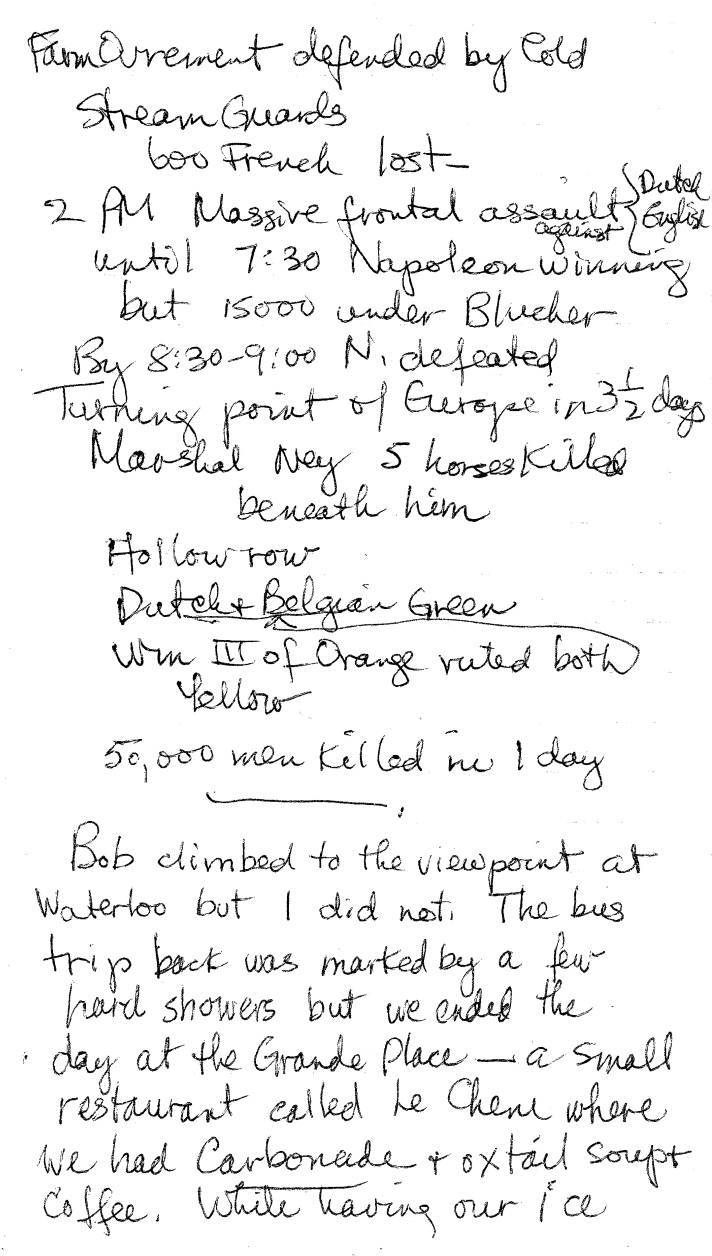 Farm Ovrement defended by Cold
Stream Guards
600 French lost—
2 PM Massive frontal assault against { Dutch English
until 7:30 Napoleon winning
but 15000 under Blucher
By 8:30-9:00 N. defeated
Turning point of Europe in 3 1/2 days
Marshal Ney 5 horses Killed
beneath him
Hollow row
Dutch + Belgian Green
Wm III of Orange ruled both
Yellow
50,000 men Killed in 1 day
Bob climbed to the viewpoint at
Waterloo but I did not. The bus
trip back was marked by a few
hard showers but we ended the
day at the Grande Place — a small
restaurant called Le Chene where
We had Carbonade + oxtail soup +
Coffee. While having our ice